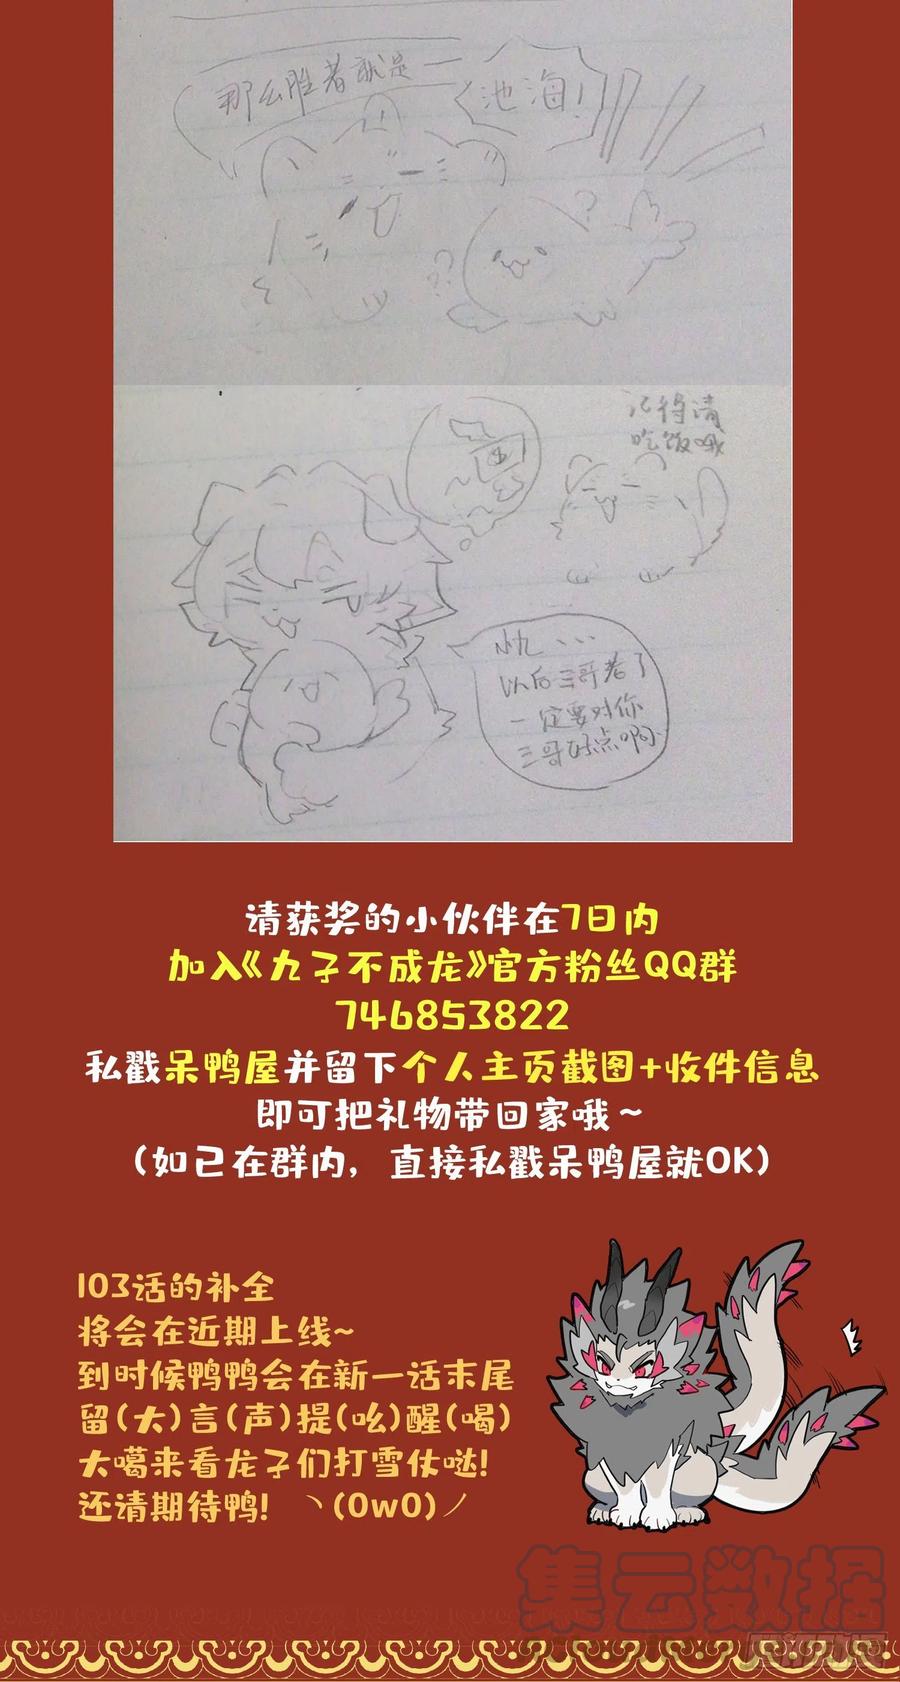 那么胜者就是一
池海！
?
??
记得请
吃饭哦
小九、、、
以后三哥老了
一定要对你
三哥好点啊
请获奖的小伙伴在7日内
加入《九子不成龙》官方粉丝QQ群
746853822
私戳呆鸭屋并留下个人主页截图+收件信息
即可把礼物带回家哦～
（如已在群内，直接私戳呆鸭屋就OK）
103话的补全
将会在近期上线~
到时候鸭鸭会在新一话末尾
留(大)言(声)提(吆)醒(喝)
大噶来看龙子们打雪仗哒!
还请期待鸭! ヽ(OwO)ノ
集云数据